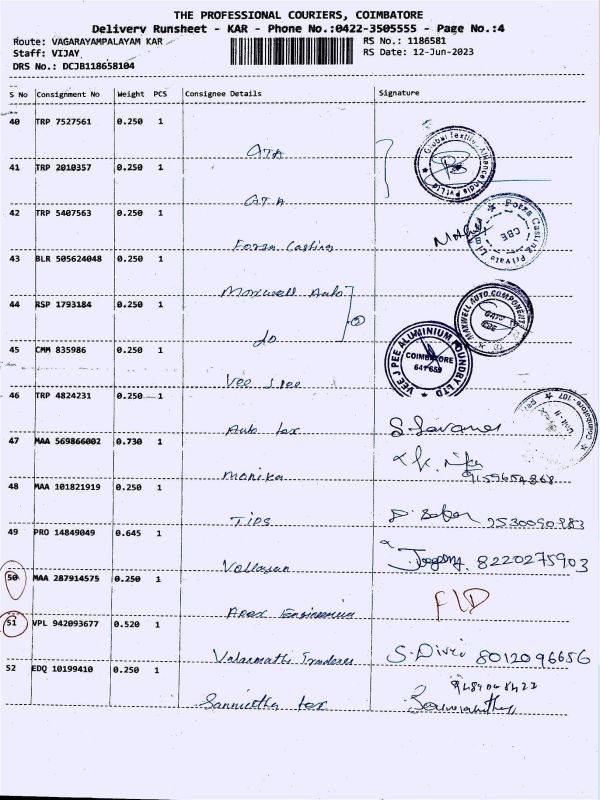 THE PROFESSIONAL COURIERS, COIMBATORE
Delivery Runsheet - KAR - Phone No.:0422-3505555 - Page No.:4
Route: VAGARAYAMPALAYAM KAR
RS No.: 1186581
Staff: VIJAY
RS Date: 12-Jun-2023
DRS No.: DCJB118658104
S No Consignment No Weight PCS Consignee Details Signature
40 TRP 7527561 0.250 1
GTA
Global Textile Alliance India Pvt Ltd
41 TRP 2010357 0.250 1
GTA
42 TRP 5407563 0.250 1
Forza Casting
Forza Casting Private Limited
CBE
43 BLR 505624048 0.250 1
Maxwell Auto
44 RSP 1793184 0.250 1
do
2
MAXWELL AUTO COMPONENTS
CBE
45 CMM 835986 0.250 1
Vee J Pee
VEE J PEE ALUMINIUM FOUNDRY LTD
COIMBATORE
641 659
46 TRP 4824231 0.250 1
Auto tex
Coimbatore-107
47 MAA 569866002 0.730 1
Monika
48 MAA 101821919 0.250 1
TIPS
49 PRO 14849049 0.645 1
8220275903
50 MAA 287914575 0.250 1
Apex Engineering
FLD
51 VPL 942093677 0.520 1
Valarmathi Traderes
S. Divi 8012096656
52 EDQ 10199410 0.250 1
tex